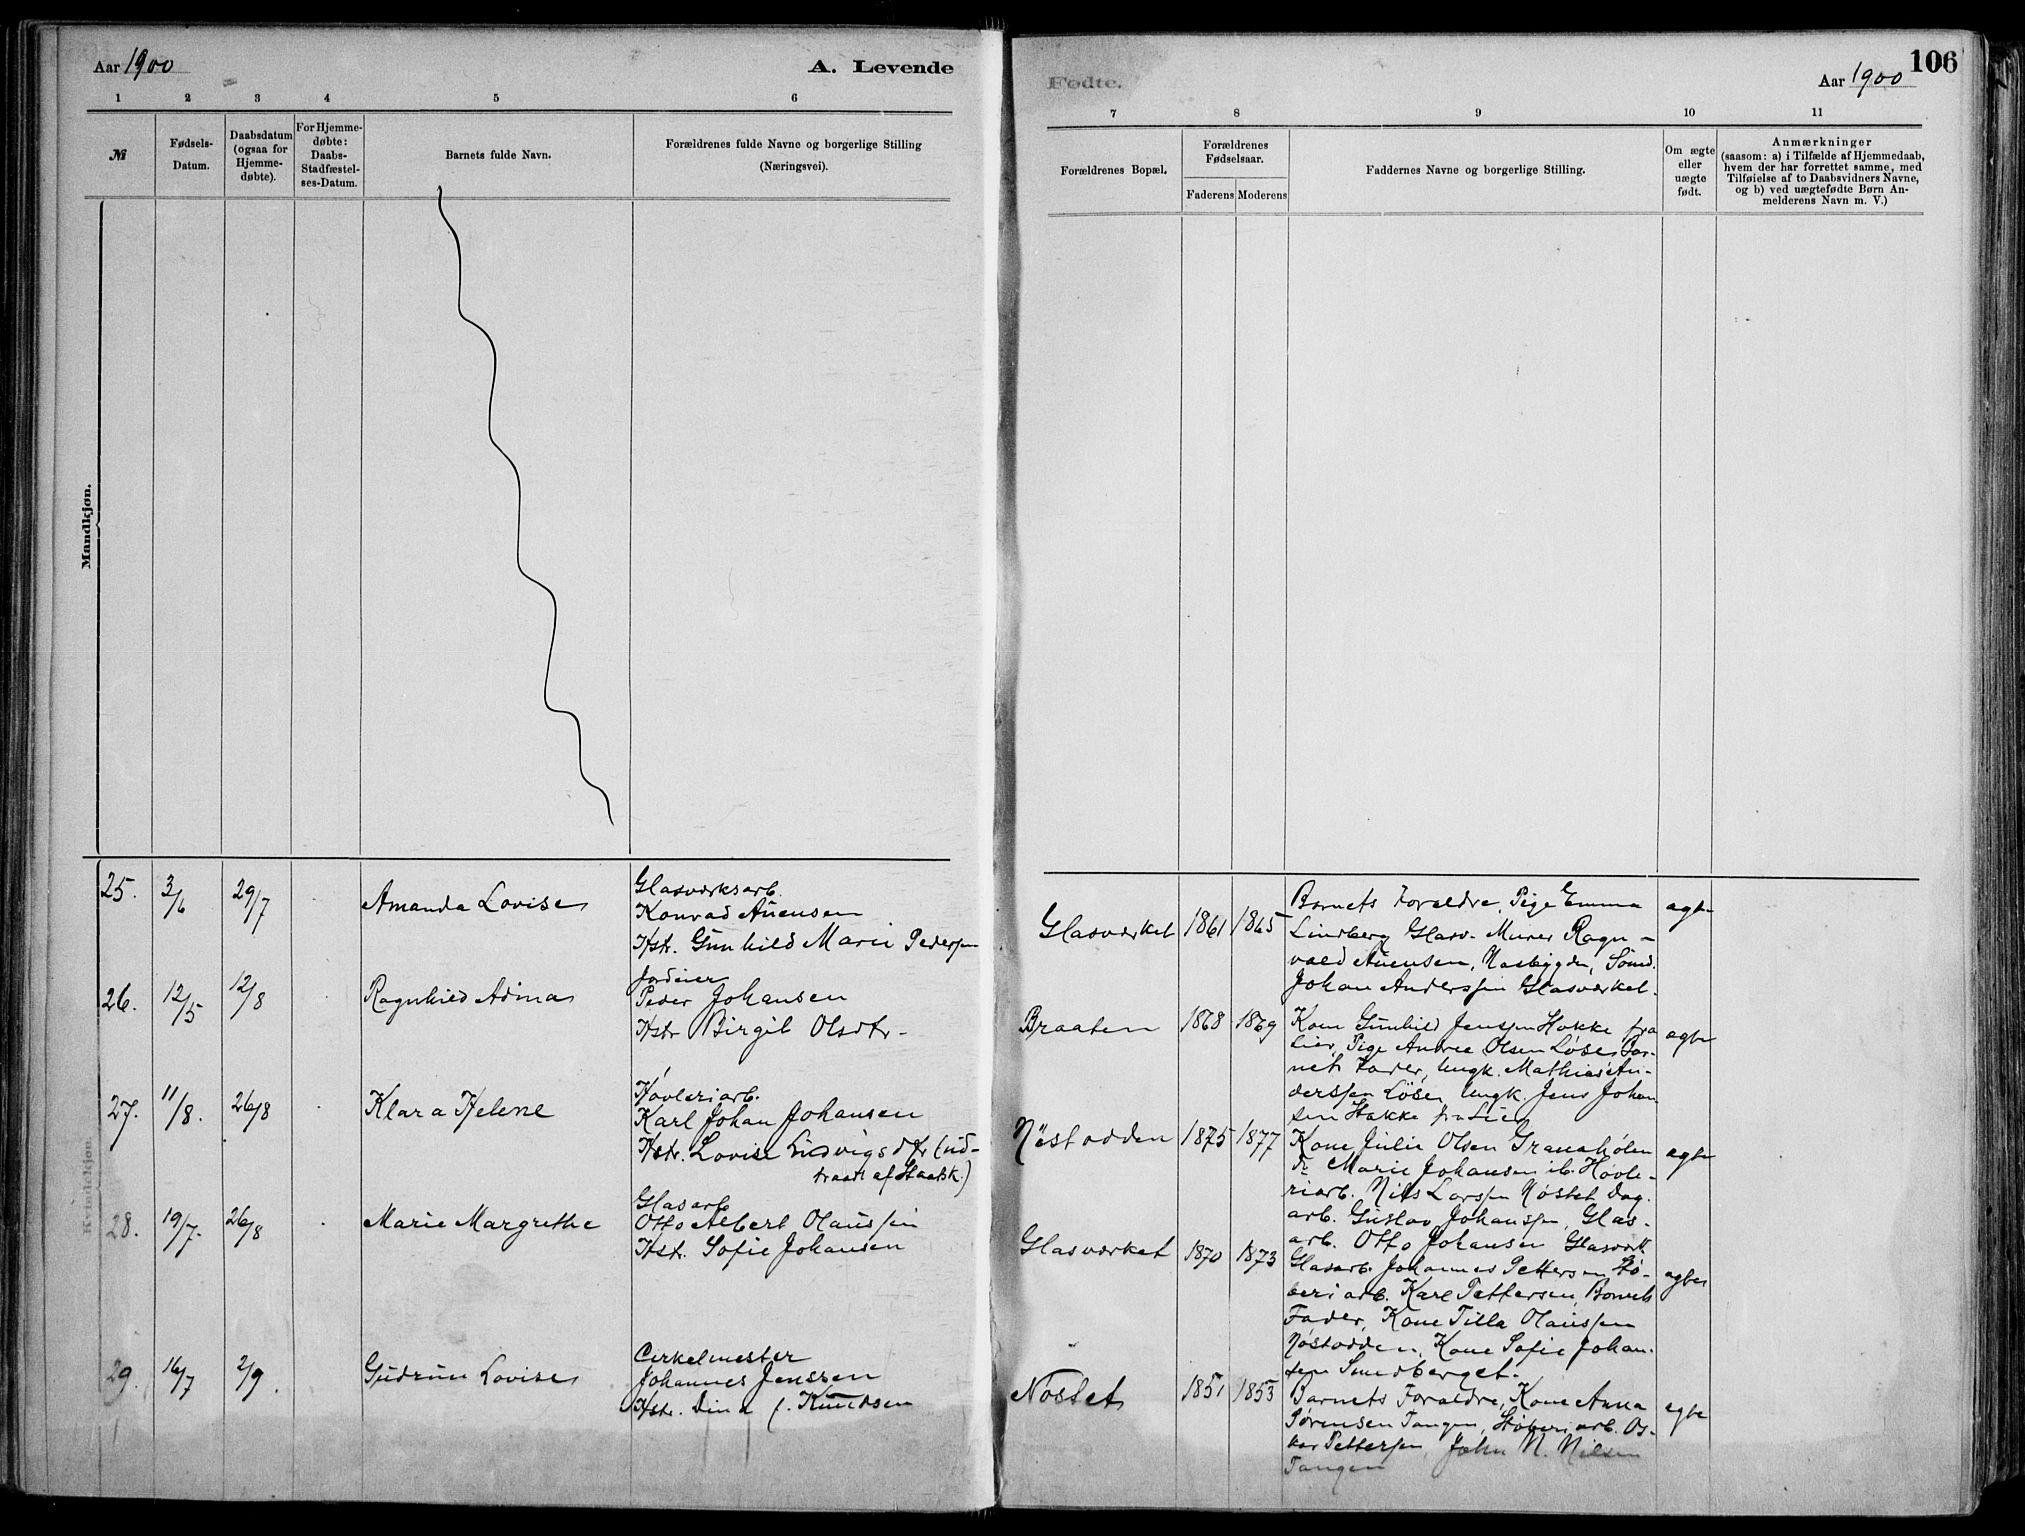 Aar 1900
A. Levende
Fødte.
Aar 1900
106
1 2 3 4 5 6
7 8 9 10 11
№
Fødsels-
Datum.
Daabsdatum
(ogsaa for
Hjemme-
døbte).
For Hjemme-
døbte:
Daabs-
Stadfæstel-
ses-Datum.
Barnets fulde Navn.
Forældrenes fulde Navne og borgerlige Stilling
(Næringsvei).
Forældrenes Bopæl.
Forældrenes
Fødselsaar.
Faderens Moderens
Faddernes Navne og borgerlige Stilling.
Om ægte
eller
uægte
født.
Anmærkninger
(saasom: a) i Tilfælde af Hjemmedaab,
hvem der har forrettet samme, med
Tilføielse af to Daabsvidners Navne,
og b) ved uægtefødte Børn An-
melderens Navn m. V.)
Mandkjøn.
Kvindekjøn.
25. 3/6 29/7
Amanda Lovise
Glasværksarb.
Konrad Auensen
Hstr. Gunhild Marie Pedersen
Glasværket 1861 1865
Barnets Forældre, Pige Emma
Lindberg Glasv. Murer Ragn-
vald Auensen, Næsbygden,
Johan Anderssen Glasværket.
ægte
26. 12/5 12/8
Ragnhild Adina
Jordeier
Peder Johansen
Hstr Birgit Olsdtr.
Braaten 1868 1869
Kone Gunhild Jenssen Hakke fra
Lier, Pige Andrea Olsen Løse, Bar-
nets Fader, Ungk. Mathias An-
derssen Løse, Ungk. Jens Johan-
sen Hakke fra Lier
ægte
27. 11/8. 26/8
Klara Helene
Høvleriarb.
Karl Johan Johansen
Hstr. Lovise Ludvigsdtr (ud-
traadt af Statsk.)
Nøstodden 1875 1877
Kone Julie Olsen Granehølen
Do Marie Johansen ib. Høvle-
riarb. Nils Larssen Nøstet Dag.
arb. Gustav Johanssen, Glas-
arb. Otto Johansen Glasværk.
ægte
28. 19/7. 26/8
Marie Margrethe
Glasarb.
Otto Albert Olaussen
Hstr. Sofie Johansen
Glasværket 1870 1873
Glasarb. Johannes Pettersen Stø-
beriarb. Karl Pettersen, Barnets
Fader, Kone Tilla Olaussen
Nøstodden, Kone Sofie Johan-
sen Smedberget.
ægte
29. 16/7 2/9.
Gudrun Lovise
Cirkelmester
Johannes Jenssen
Hstr. Dina f. Knudsen
Nøstet 1851 1853
Barnets Forældre, Kone Anna
Sørensen Tangen, Støberiarb. Os-
kar Pettersen, John N. Nilsen
Tangen
ægte